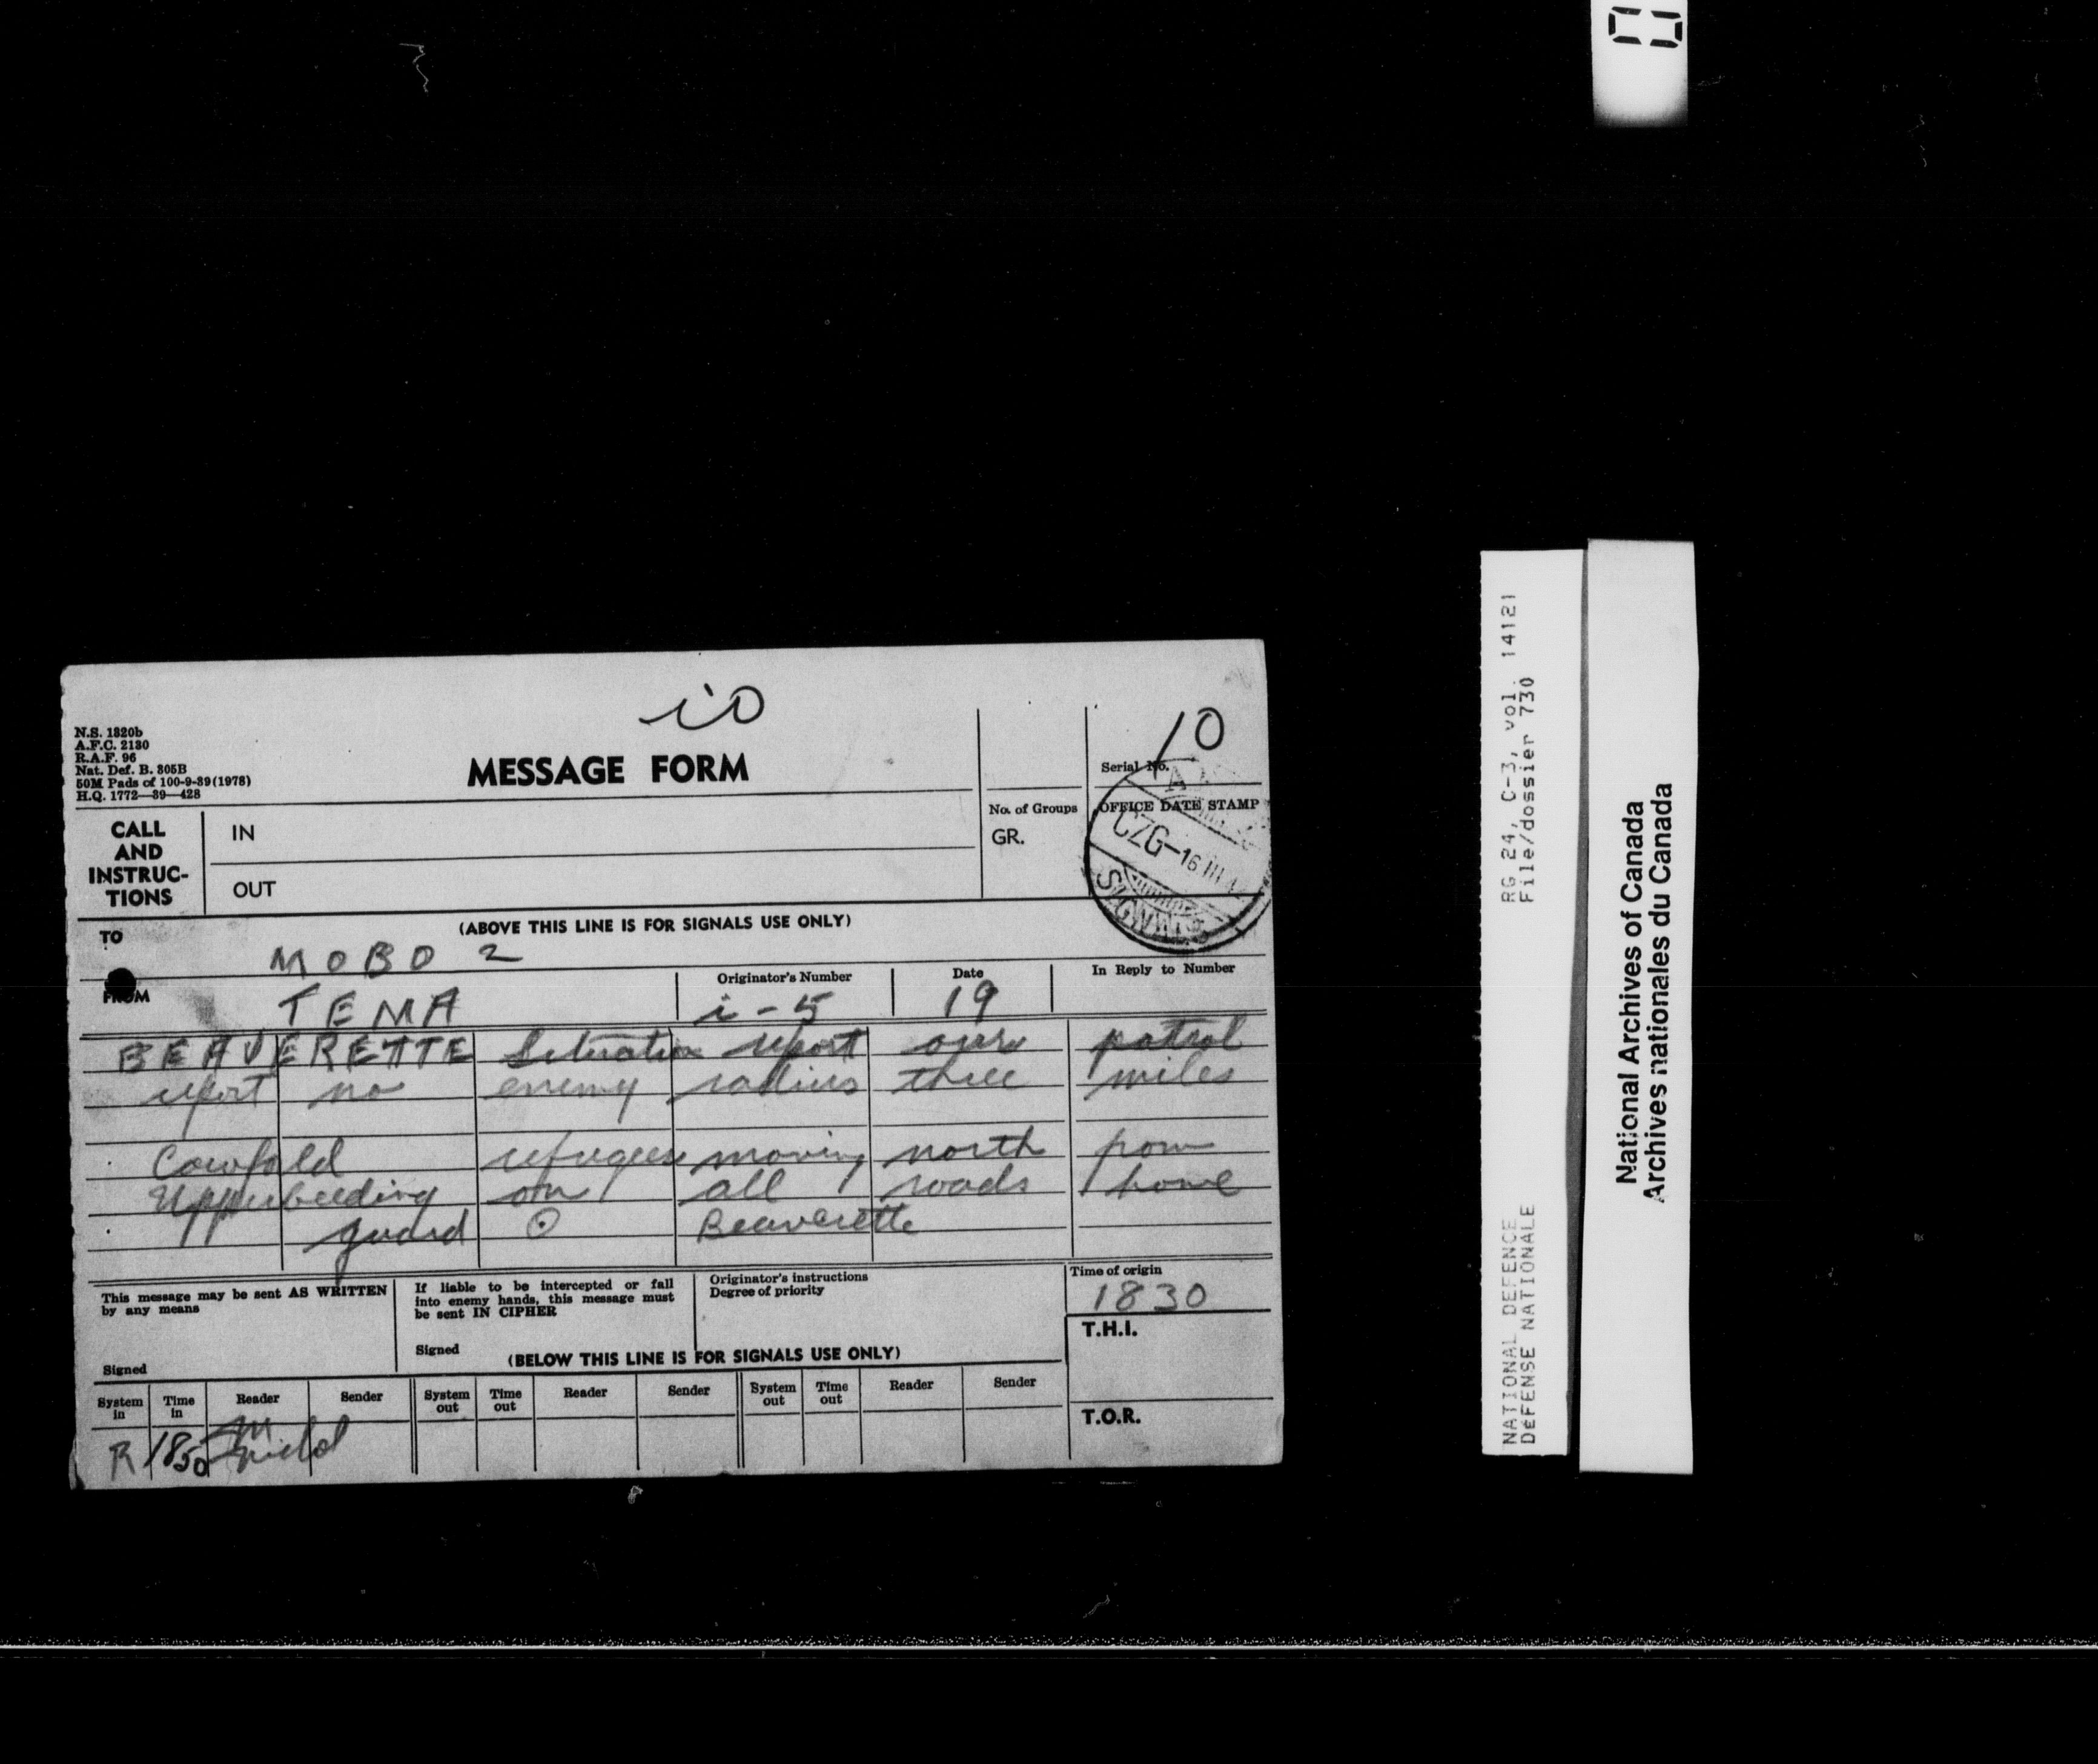 io
10
N.S. 1320b
A.F.C. 2130
R.A.F. 96
Nat. Def. B. 305B
50M Pads of 100-9-39(1978)
H.Q. 1772—39—428
MESSAGE FORM
Serial No.
CALL AND INSTRUC-TIONS
IN
OUT
No. of Groups
GR.
OFFICE DATE STAMP
CZG-16 III
SIGNALS
(ABOVE THIS LINE IS FOR SIGNALS USE ONLY)
TO MOBO 2
FROM TEMA
Originator's Number i-5
Date 19
In Reply to Number
BEAVERETTE Situation report our patrol
report no enemy radius three miles
Cowfold refugees moving north from
Upperbeeding on all roads home
guard ⊙ Beaverette
This message may be sent AS WRITTEN
by any means
Signed
If liable to be intercepted or fall
into enemy hands, this message must
be sent IN CIPHER
Signed
Originator's instructions
Degree of priority
Time of origin
1830
T.H.I.
T.O.R.
(BELOW THIS LINE IS FOR SIGNALS USE ONLY)
System in Time in Reader Sender System out Time out Reader Sender System out Time out Reader Sender
R 1850
RG 24, C-3, vol. 14121
File/dossier 730
NATIONAL DEFENCE
DéFENSE NATIONALE
National Archives of Canada
Archives nationales du Canada